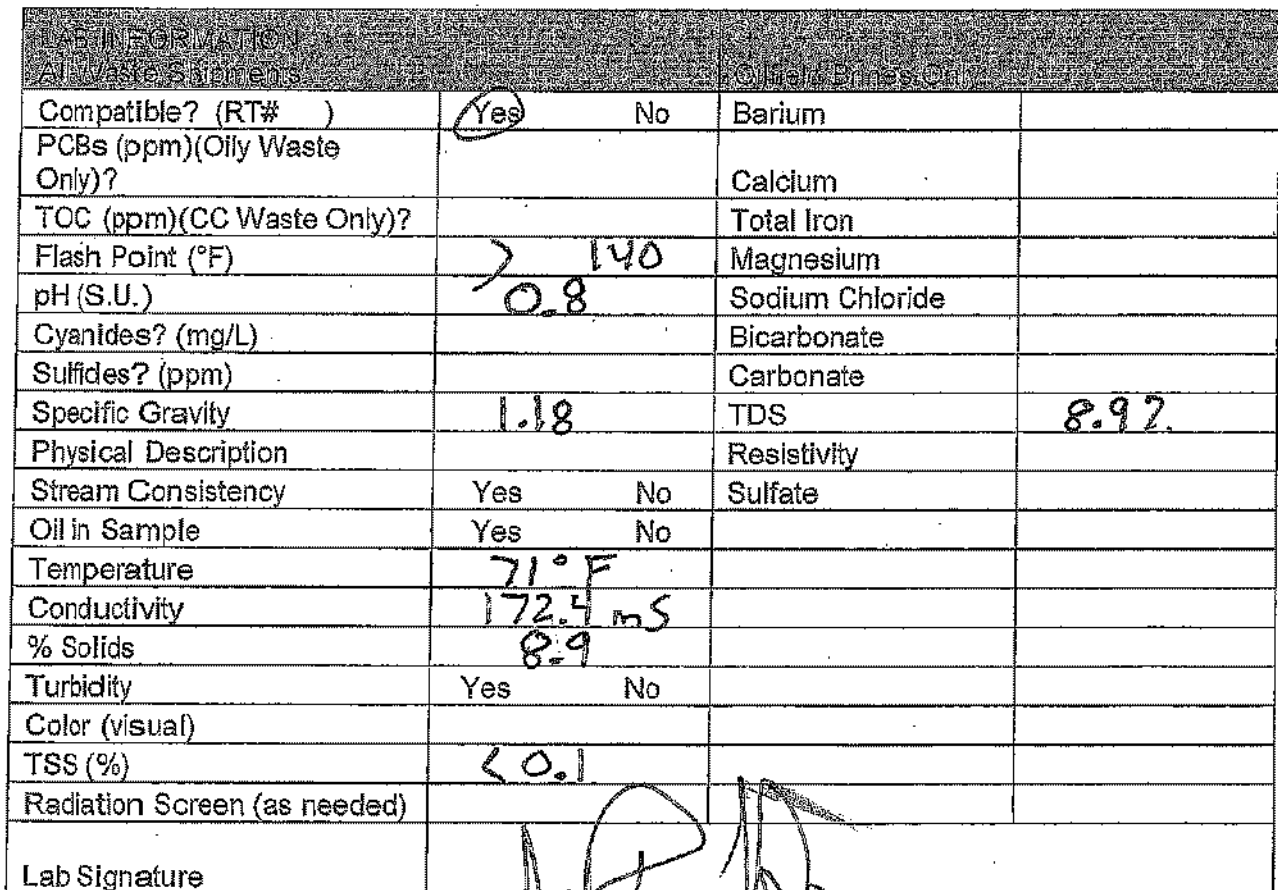 LAB INFORMATION
All Waste Shipments Oilfield Brines Only
Compatible? (RT# ) Yes No Barium
PCBs (ppm)(Oily Waste
Only)? Calcium
TOC (ppm)(CC Waste Only)? Total Iron
Flash Point (°F) > 140 Magnesium
pH (S.U.) 0.8 Sodium Chloride
Cyanides? (mg/L) Bicarbonate
Sulfides? (ppm) Carbonate
Specific Gravity 1.18 TDS 8.9%
Physical Description Resistivity
Stream Consistency Yes No Sulfate
Oil in Sample Yes No
Temperature 71°F
Conductivity 172.4 mS
% Solids 8.9
Turbidity Yes No
Color (visual)
TSS (%) <0.1
Radiation Screen (as needed)
Lab Signature